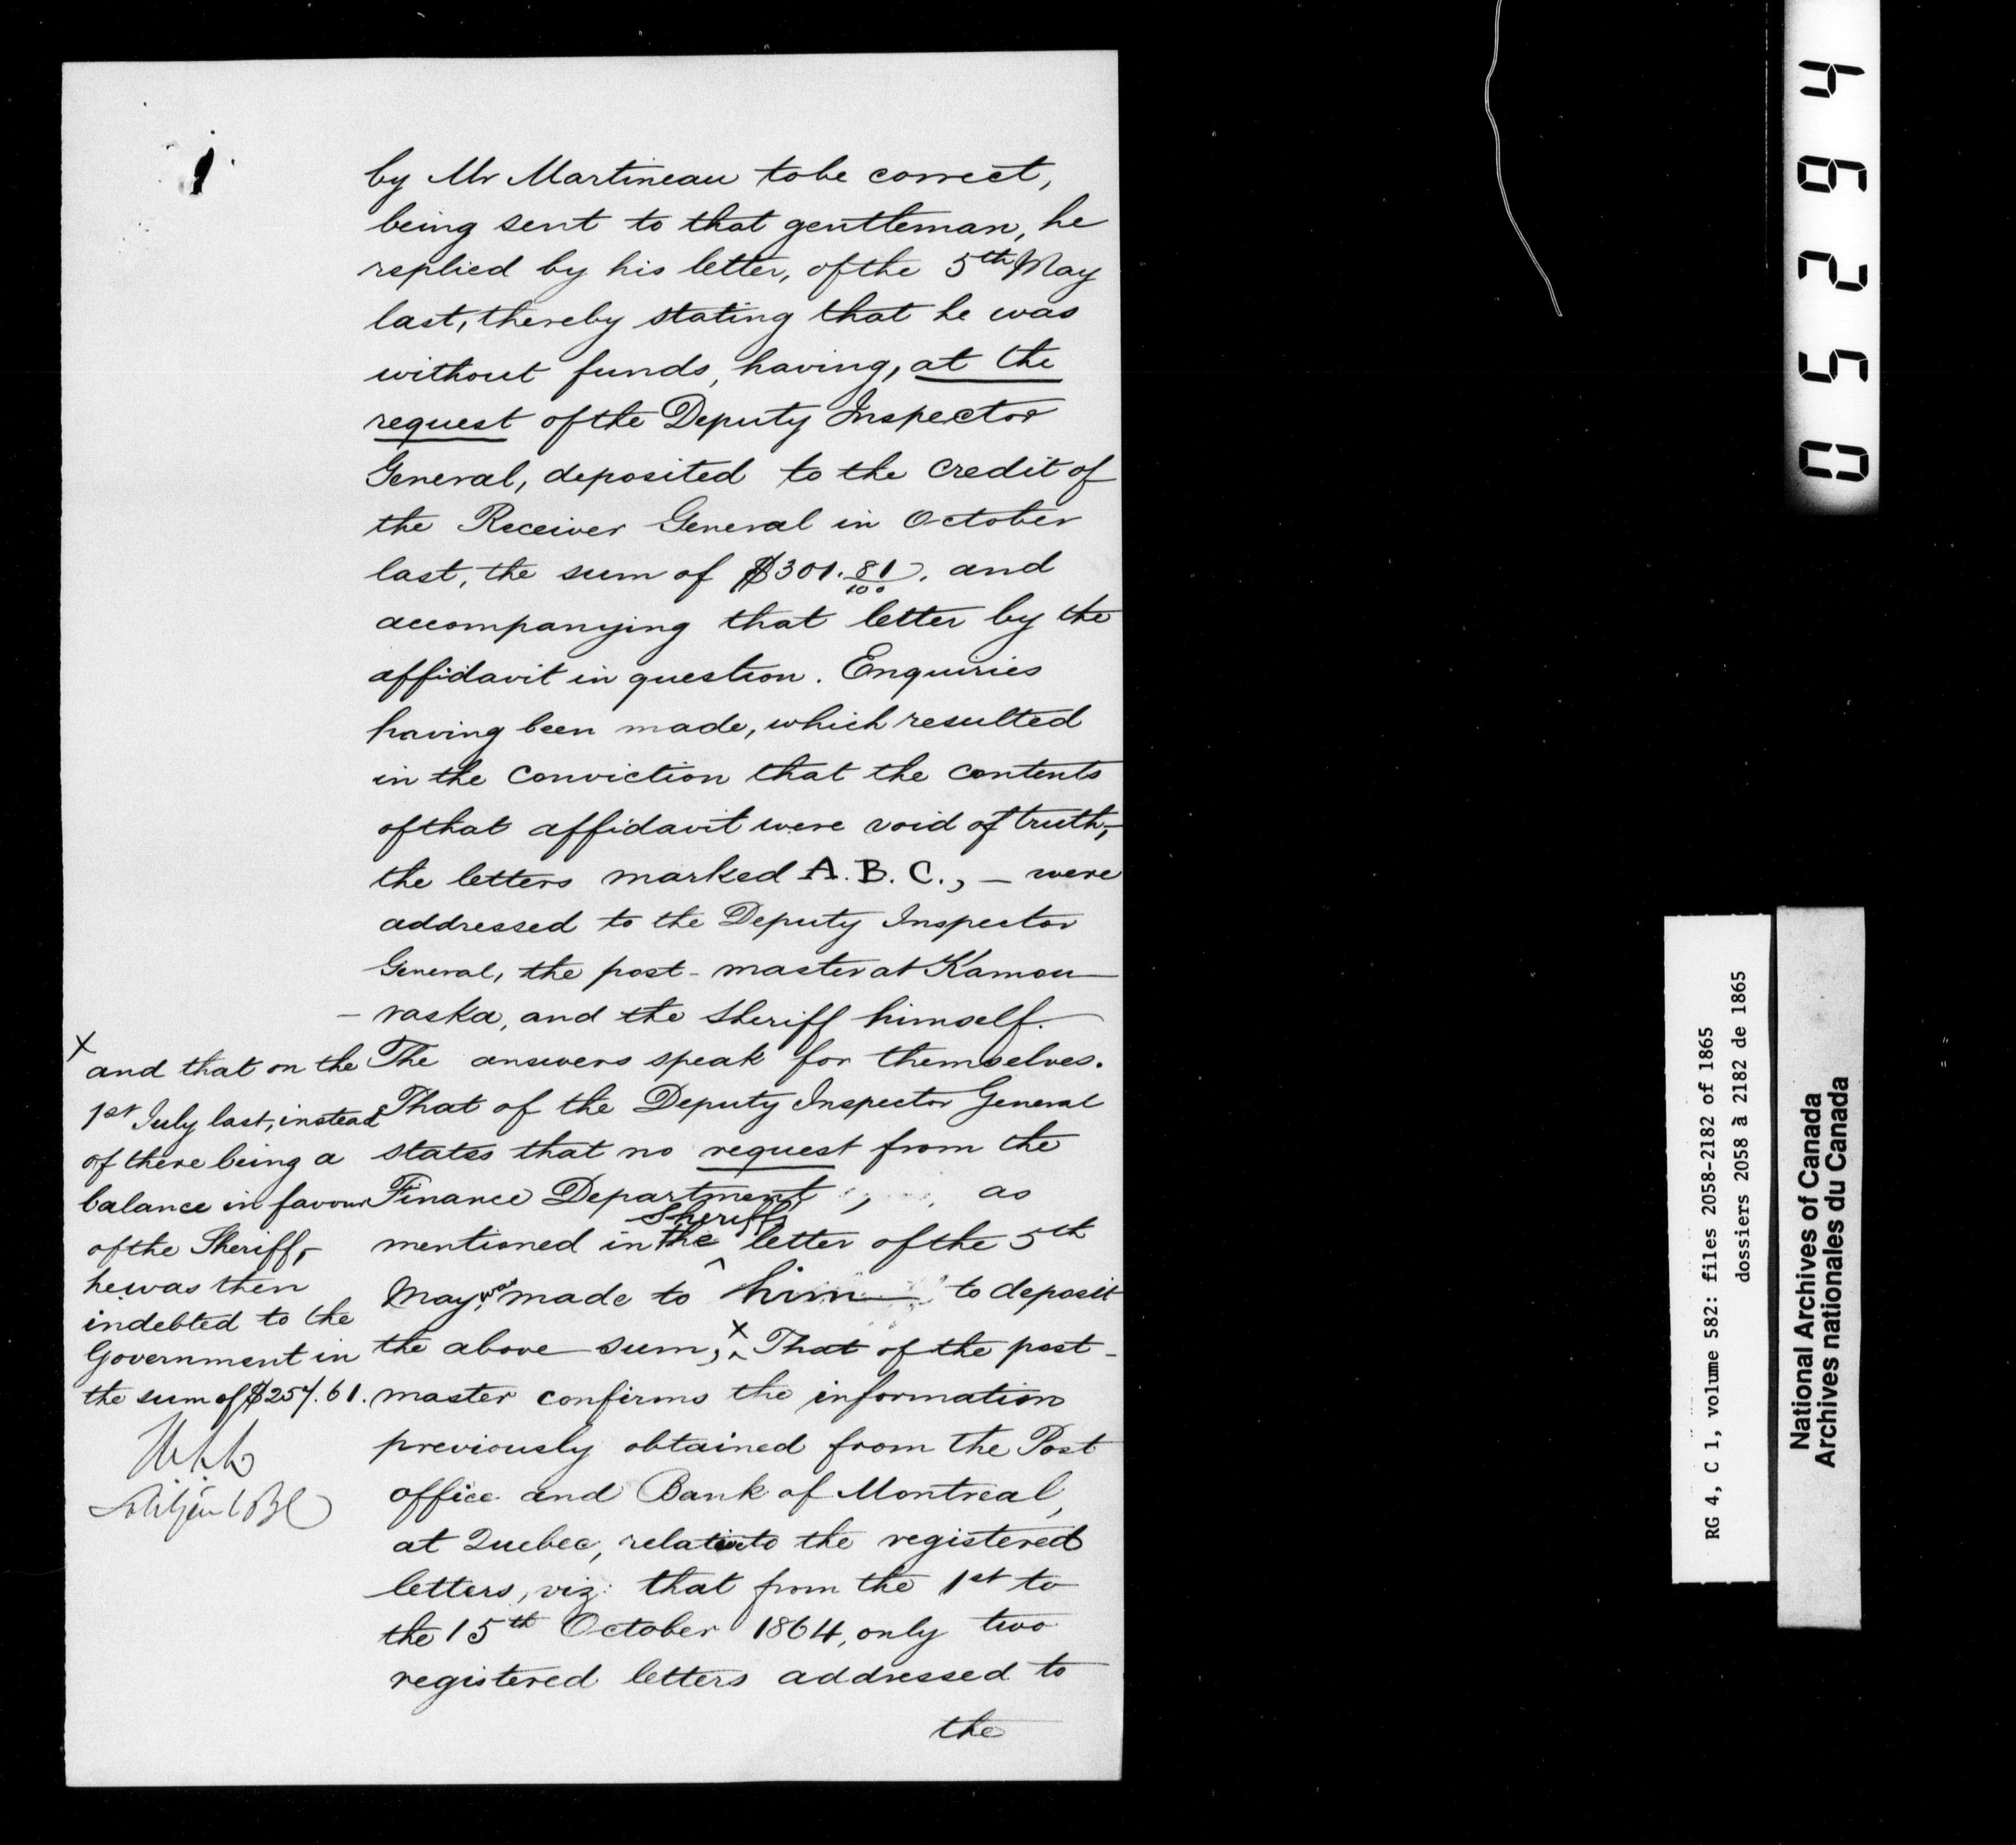 by Mr Martineau to be correct,
being sent to that gentleman, he
replied by his letter, of the 5th May
last, thereby stating that he was
without funds, having, at the
request of the Deputy Inspector
General, deposited to the credit of
the Receiver General in October
last, the sum of $301.81/100. and
accompanying that letter by the
affidavit in question. Enquiries
having been made, which resulted
in the conviction that the contents
of that affidavit were void of truth,
the letters marked A. B. C., — were
addressed to the Deputy Inspector
General, the post-master at Kamou
-raska, and the Sheriff himself.
The answers speak for themselves.
That of the Deputy Inspector General
states that no request from the
Finance Department, as
mentioned in the Sheriff's letter of the 5th
May, was made to him to deposit
the above sum, x That of the post-
master confirms the information
previously obtained from the Post
office and Bank of Montreal,
at Quebec, relative to the registered
letters, viz: that from the 1st to
the 15th October 1864, only two
registered letters addressed to
the
x
and that on the
1st July last, instead
of there being a
balance in favour
of the Sheriff,
he was then
indebted to the
Government in
the sum of $257.61.
RG 4, C 1, volume 582: files 2058-2182 of 1865
dossiers 2058 à 2182 de 1865
National Archives of Canada
Archives nationales du Canada
0 5 2 6 4